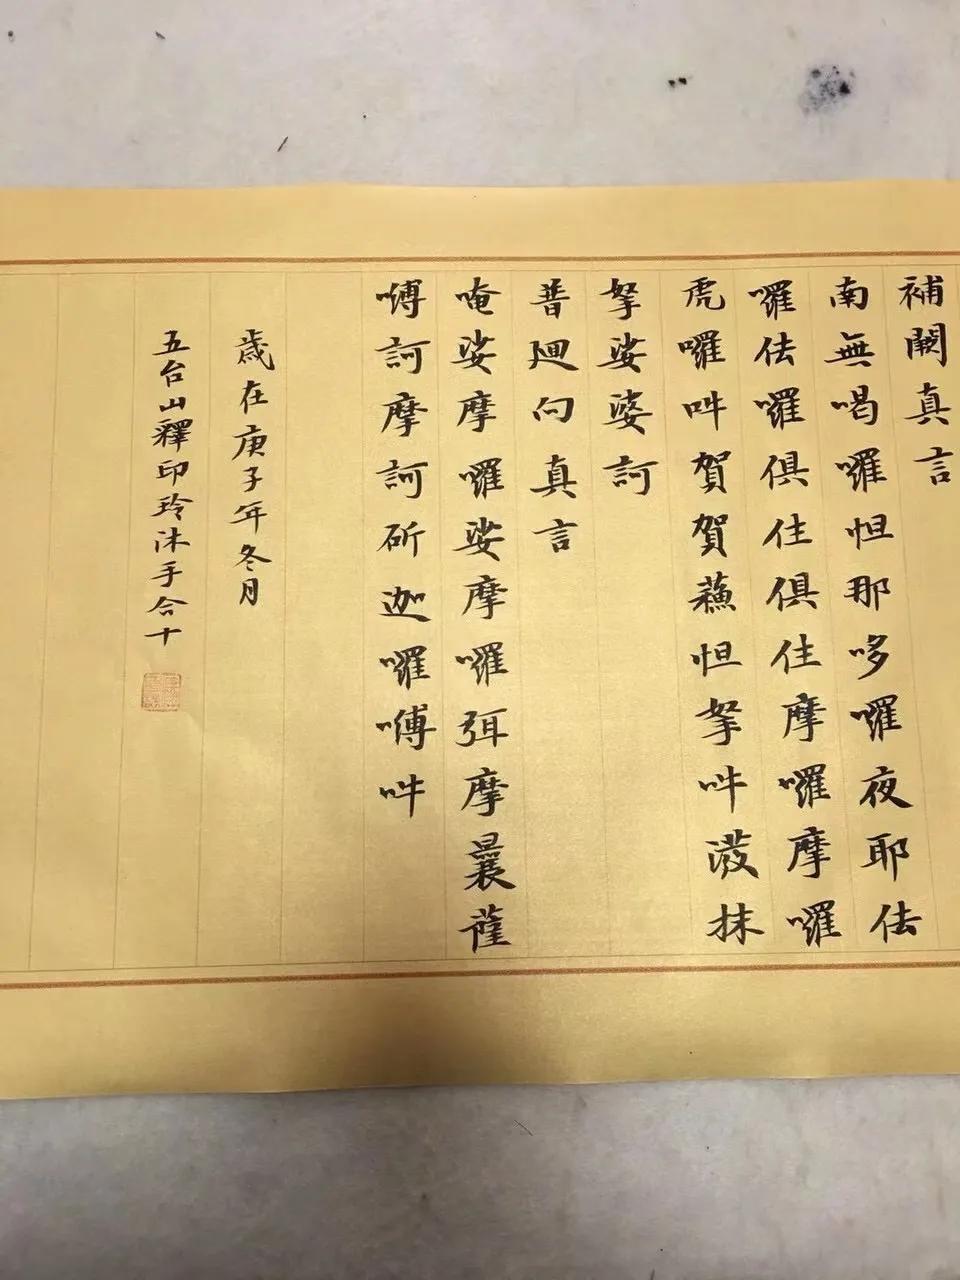 補闕真言
南無喝囉怛那哆囉夜耶佉
囉佉囉俱住俱住摩囉摩囉
虎囉吽賀賀蘓怛拏吽潑抹
拏娑婆訶
普廻向真言
唵娑摩囉娑摩囉弭摩曩薩
嚩訶摩訶斫迦囉嚩吽
歲在庚子年冬月
五台山釋印玲沐手合十